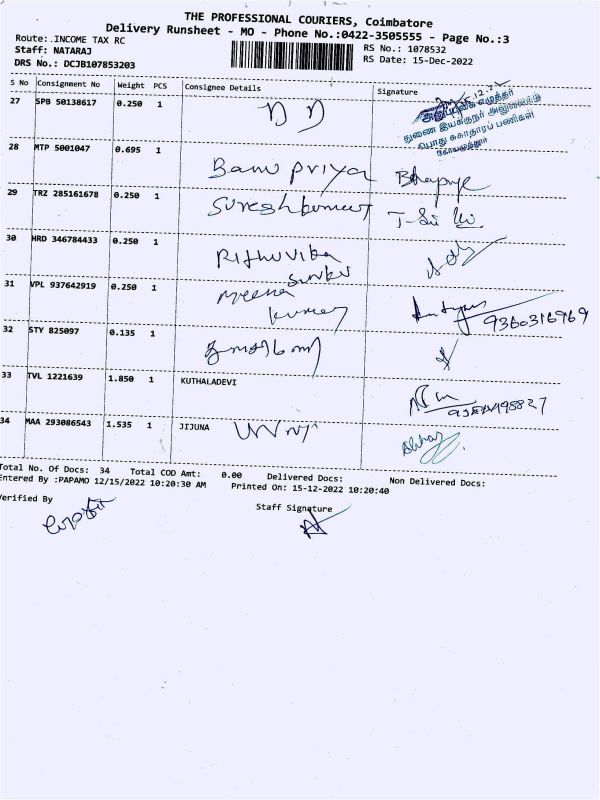 THE PROFESSIONAL COURIERS, Coimbatore
Delivery Runsheet - MO - Phone No.:0422-3505555 - Page No.:3
Route:.INCOME TAX RC
Staff: NATARAJ
DRS No.: DCJB107853203
RS No.: 1078532
RS Date: 15-Dec-2022
S No Consignment No Weight PCS Consignee Details Signature
27 SPB 50138617 0.250 1
துணை இயக்குநர் அலுவலகம்
பொது சுகாதாரப் பணிகள்
கோயமுத்தூர்
28 MTP 5001047 0.695 1 Banu priya
29 TRZ 285161678 0.250 1 Sureshkumar
30 HRD 346784433 0.250 1
31 VPL 937642919 0.250 1 Meena kumar 9360316969
32 STY 825097 0.135 1
33 TVL 1221639 1.850 1 KUTHALADEVI
34 MAA 293086543 1.535 1 JIJUNA
Total No. Of Docs: 34 Total COD Amt: 0.00 Delivered Docs: Non Delivered Docs:
Entered By :PAPAMO 12/15/2022 10:20:30 AM Printed On: 15-12-2022 10:20:40
Verified By Staff Signature